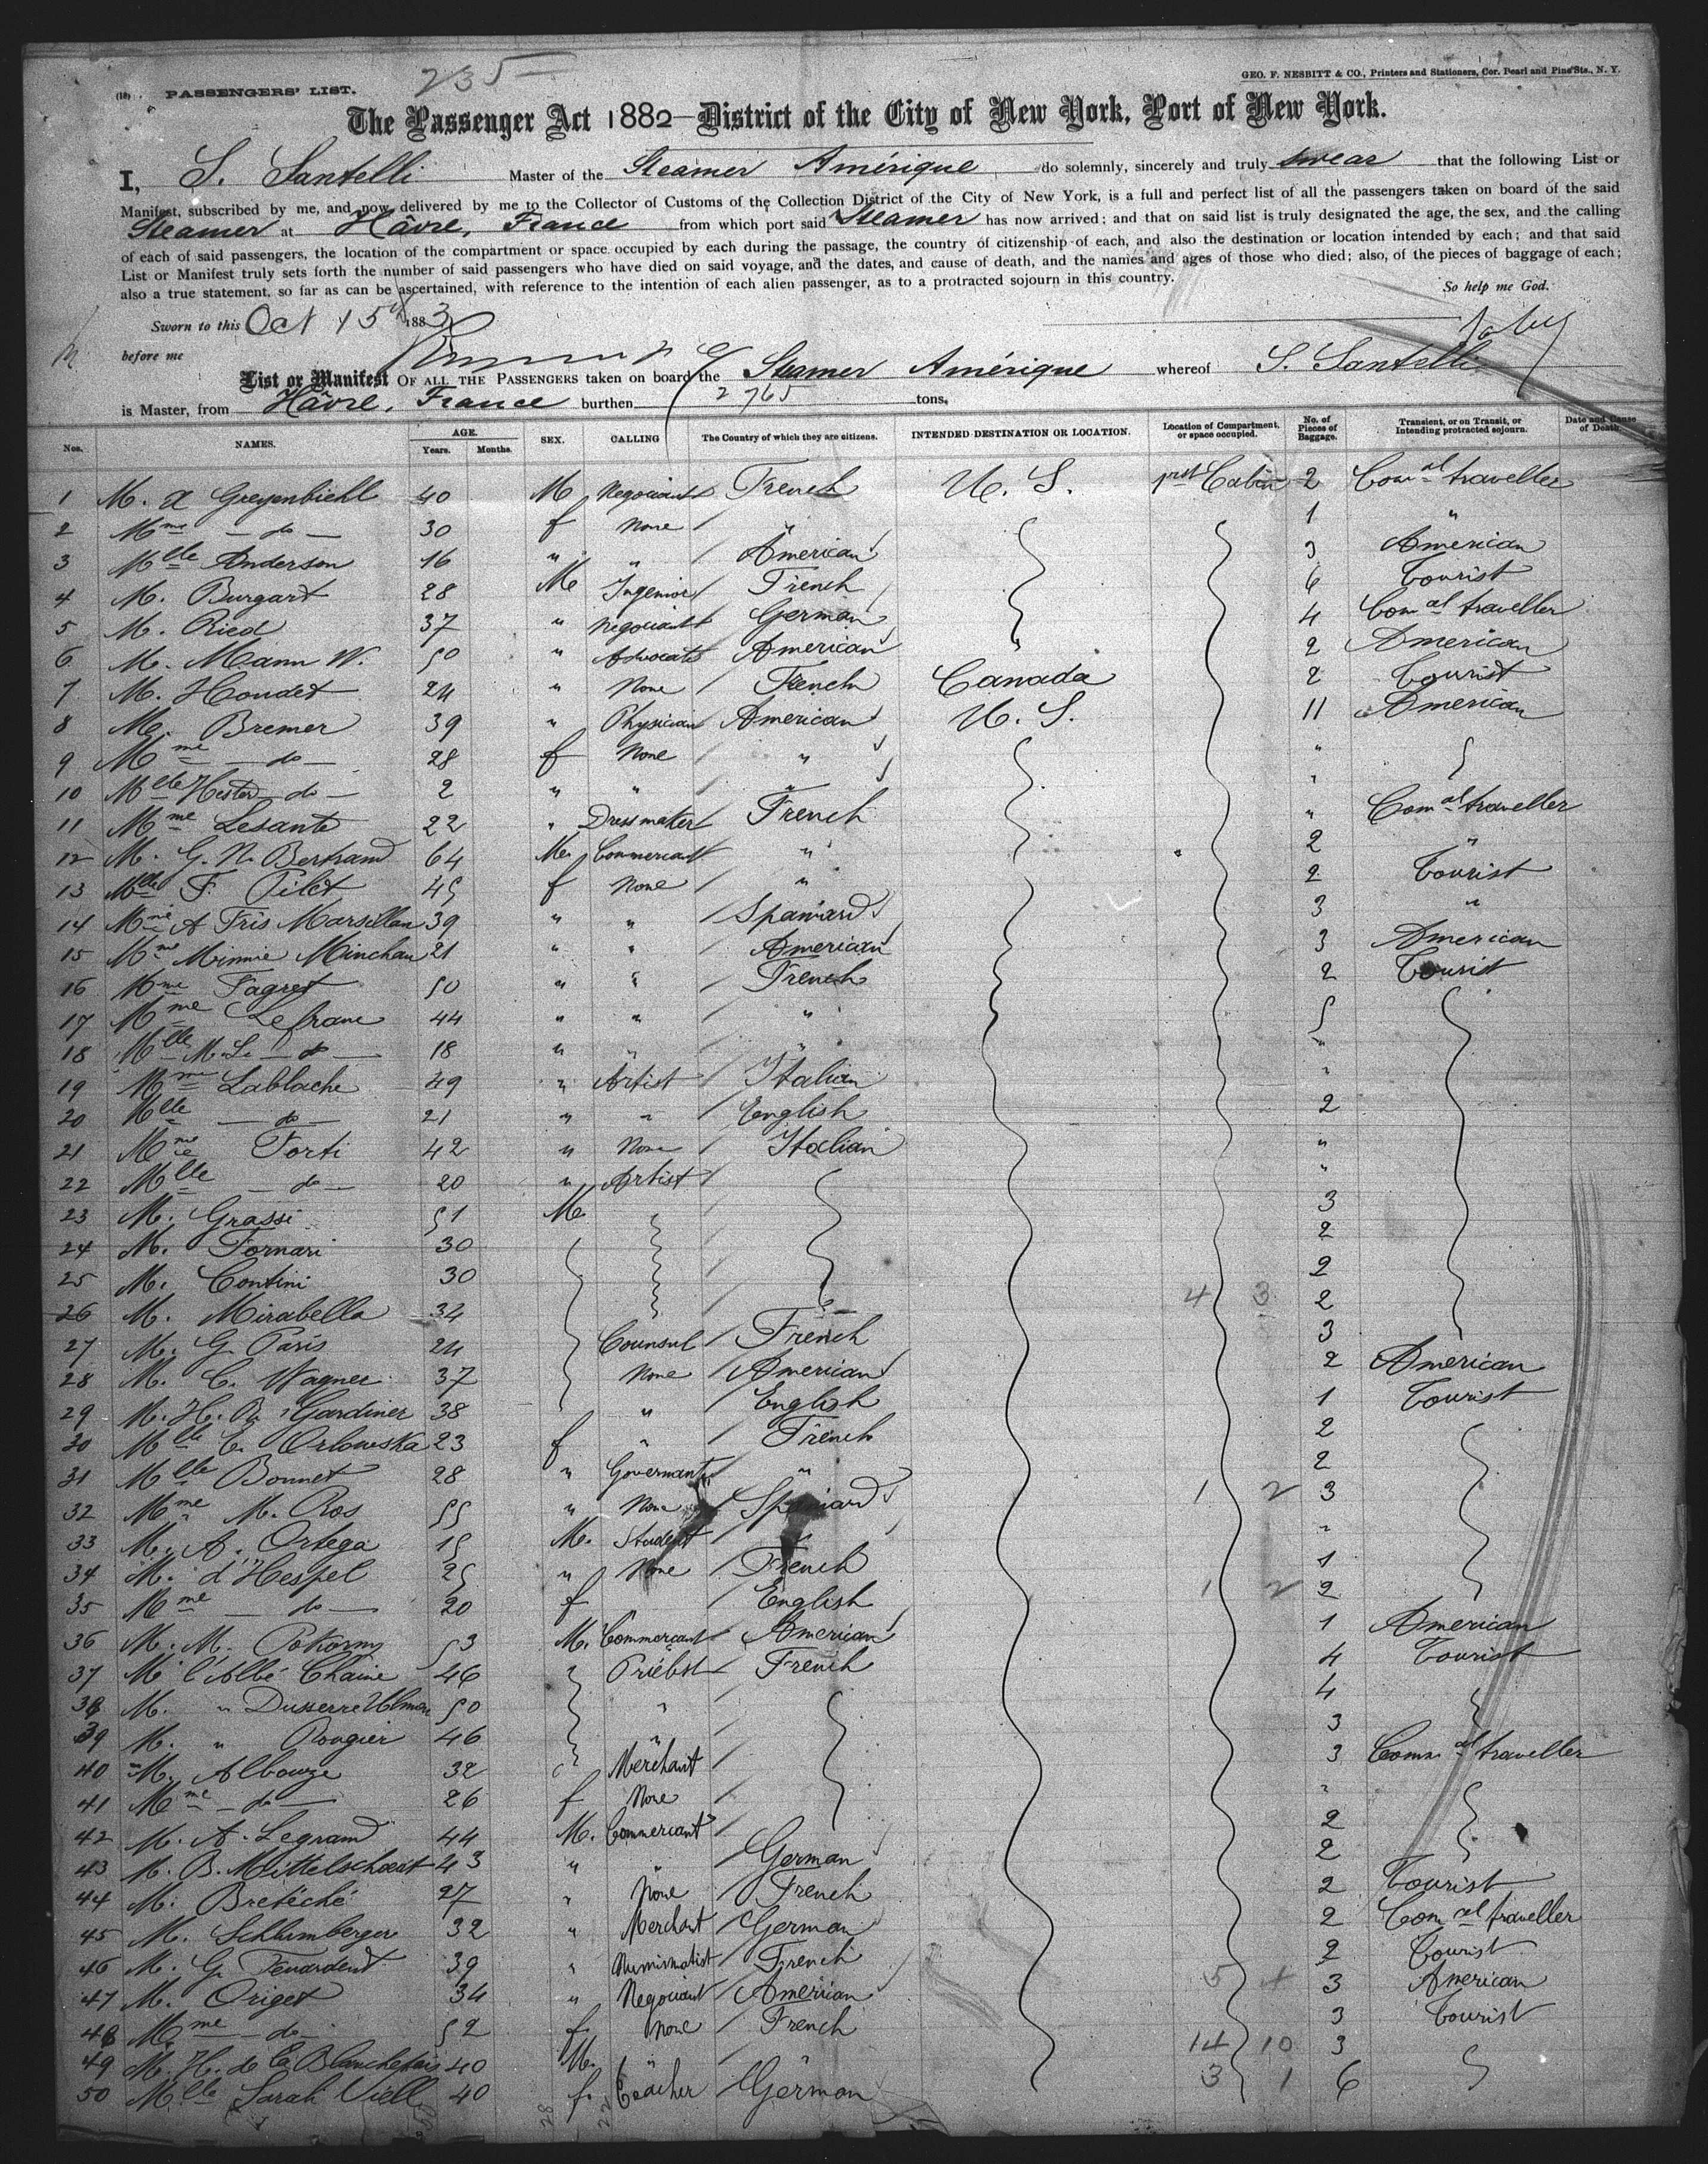 235
GEO. F. NESBITT & CO., Printers and Stationers, Cor. Pearl and Pine Sts., N. Y.
(18) PASSENGERS' LIST.
The Passenger Act 1882—District of the City of New York, Port of New York.
I, S. Santelli Master of the Steamer Amérique do solemnly, sincerely and truly swear that the following List or
Manifest, subscribed by me, and now delivered by me to the Collector of Customs of the Collection District of the City of New York, is a full and perfect list of all the passengers taken on board of the said
Steamer at Hâvre, France from which port said Steamer has now arrived; and that on said list is truly designated the age, the sex, and the calling
of each of said passengers, the location of the compartment or space occupied by each during the passage, the country of citizenship of each, and also the destination or location intended by each; and that said
List or Manifest truly sets forth the number of said passengers who have died on said voyage, and the dates, and cause of death, and the names and ages of those who died; also, of the pieces of baggage of each;
also a true statement, so far as can be ascertained, with reference to the intention of each alien passenger, as to a protracted sojourn in this country.
So help me God.
Sworn to this Oct 15th 1883
before me
List or Manifest OF ALL THE PASSENGERS taken on board the Steamer Amérique whereof S. Santelli
is Master, from Hâvre, France burthen 2765 tons.
Nos. NAMES. AGE. Years. Months. SEX. CALLING The Country of which they are citizens. INTENDED DESTINATION OR LOCATION. Location of Compartment, or space occupied. No. of Pieces of Baggage. Transient, or on Transit, or Intending protracted sojourn. Date and Cause of Death
1 M. 40 M Negociant French U. S. 1rst Cabin 2 Com al traveller
2 Mme — do — 30 f None " 1 "
3 Mlle Anderson 16 " " American 3 American
4 M. Burgart 28 M Ingenior French 6 Tourist
5 M. Ried 37 " Negociant German 4 Com al traveller
6 M. Mann W. 50 " Advocate American " 2 American
7 M. Houdet 24 " None French Canada 2 Tourist
8 M. Bremer 39 " Physician American U. S. 11 American
9 Mme — do — 28 f None " "
10 Mlle Hester do — 2 " " " "
11 Mme Lesante 22 " Dressmaker French " Com al traveller
12 M. G. N. Bertrand 64 M. Commercant " 2 "
13 Mlle F. Pilet 45 f None " 2 Tourist
14 Mme A Fris Marsillan 39 " " Spaniard 3 "
15 Mme Minnie Minchau 21 " " American 3 American
16 Mme Fagret 50 " " French 2 Tourist
17 Mme Lefranc 44 " " " 5
18 Mlle M. L. — do — 18 " " " "
19 Mme Lablache 49 " Artist Italian "
20 Mlle — do — 21 " " English 2
21 Mme Torti 42 " None Italian "
22 Mlle — do — 20 " Artist "
23 M. Grassi 51 M. 3
24 M. Fornari 30 2
25 M. Contini 30 2
26 M. Mirabella 34 4 3 2
27 M. G. Paris 24 Counsul French 3
28 M. C. Wagner 37 None American 2 American
29 M. H. B. Gardiner 38 " English 1 Tourist
30 Mlle C. Orlowska 23 f " French 2
31 Mlle Bonnet 28 " Governante " 2
32 Mme M. Ros 55 " None Spaniard 1 2 3
33 M. A. Ortega 15 M. Student " "
34 M. d'Hespel 25 " None French 1
35 Mme — do — 20 f English 1 2 2
36 M. M. Pokorny 53 M. Commercant American 1 American
37 M l'Abbé Chaine 46 " Priebst French 4 Tourist
38 M. " Dusserre 50 " 4
39 M. " Rougier 46 " 3
40 M. Albouze 32 Merchant 3 Comm al traveller
41 Mme — do — 26 f None "
42 M. A. Legrand 44 M. Commercant 2
43 M. B. Mittelschoeit 43 " " German 2
44 M. Bretéché 27 " None French 2 Tourist
45 M. Schlumberger 32 " Merchant German 2 Com al traveller
46 M. G. Feuardent 39 " Numismatist French 2 Tourist
47 M. Origet 34 " Negociant American 5 3 American
48 Mme — do — 52 f None French 3 Tourist
49 M. H. de La 40 M. " 14 10 3
50 Mlle Sarah Viell 40 f. Teacher German 3 1 6
28 22